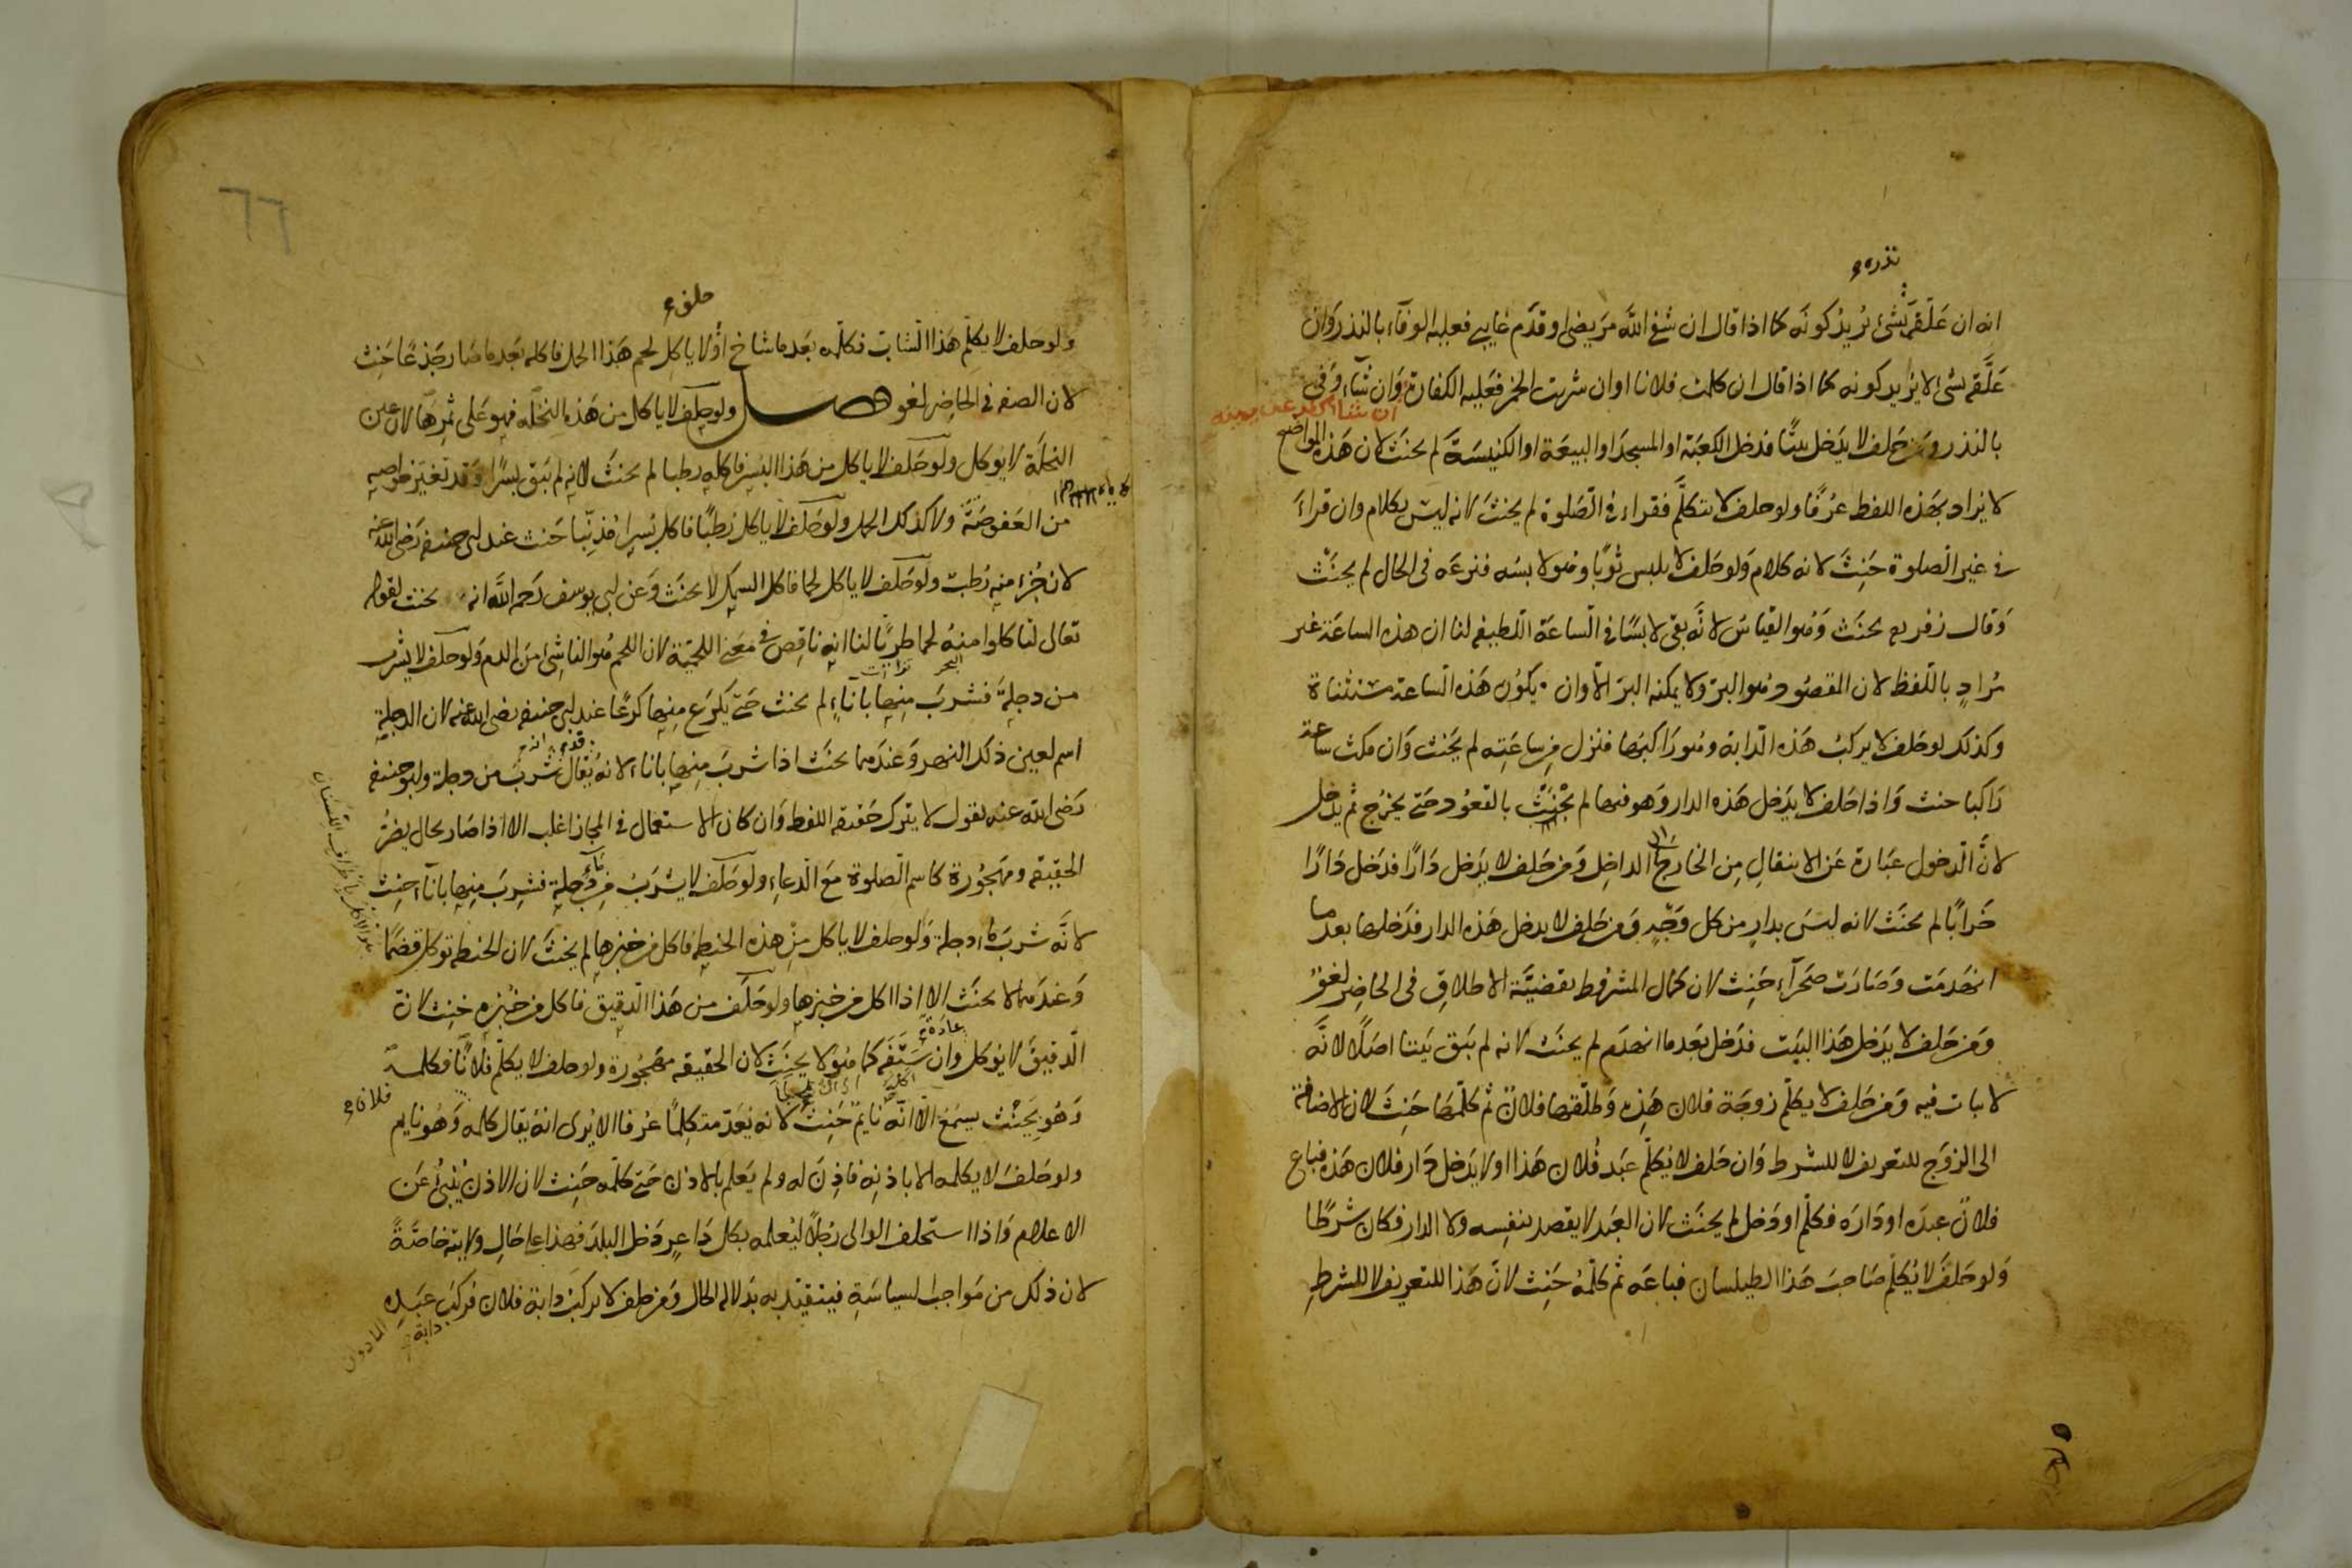 نذره
انه ان علقه بشئ يريد كونه كما اذا قال ان شفى الله مريضى او قدم غايبى فعليه الوفاء بالنذر وان
علقه بشئ لا يريد كونه كما اذا قال ان كلمت فلانا او ان شربت الخمر فعليه الكفارة وان شاء وفى
ان شاء كفر عن يمينه
بالنذر ومن حلف لا يدخل بيتًا فدخل الكعبة او المسجد او البيعة او الكنيسة لم يحنث لان هذه المواضع
لا يراد بهذه اللفظ عرفًا ولو حلف لا يتكلم فقراء فى الصلوة لم يحنث لانه ليس بكلام وان قراء
فى غير الصلوة حنث لانه كلام ولو حلف لا يلبس ثوبًا وهو لابسه فنزعه فى الحال لم يحنث
وقال زفر يحنث وهو القياس لانه بقى لابسًا فى الساعة اللطيفه لنا ان هذه الساعة غير
مراد باللفظ لان المقصود هو البر ولا يمكنه البر الا وان يكون هذه الساعة مستثناة
وكذلك لو حلف لا يركب هذه الدابة وهو راكبها فنزل من ساعته لم يحنث وان مكث ساعة
راكبا حنث واذا حلف لا يدخل هذه الدار وهو فيها لم يحنث بالقعود حتى يخرج ثم يدخل
لان الدخول عبارة عن الانتقال من الخارج الى الداخل ومن حلف لا يدخل دارًا فدخل دارًا
خرابًا لم يحنث لانه ليس بدار من كل وجه ومن حلف لا يدخل هذه الدار فدخلها بعد ما
انهدمت وصارت صحراء حنث لان كمال المشروط بقضية الاطلاق فى الحاضر لغو
ومن حلف لا يدخل هذا البيت فدخل بعد ما انهدم لم يحنث لانه لم يبق بيتا اصلًا لانه
لا يبات فيه ومن حلف لا يكلم زوجة فلان هذه وطلقها فلان ثم كلمها حنث لان الاضافة
الى الزوج للتعريف لا للشرط وان حلف لا يكلم عبد فلان هذا او لا يدخل دار فلان هذه فباع
فلان عبده او داره فكلم او دخل لم يحنث لان العبد لا يقصد بنفسه ولا الدار فكان شرطًا
ولو حلف لا يكلم صاحب هذا الطيلسان فباعه ثم كلمه حنث لان هذا للتعريف لا للشرط
٦٦
حلف
ولو حلف لا يكلم هذا الشاب فكلمه بعد ما شاخ او لا ياكل لحم هذا الحمل فاكله بعد ما صار جذعًا حنث
لان الصفه فى الحاضر لغو فصل ولو حلف لا ياكل من هذه النخله فهو على ثمرها لان عين
النخلة لا يوكل ولو حلف لا ياكل من هذا البسر فاكله رطبا لم يحنث لانه لم يبق بسرًا وقد تغير خواصه
من العفوصة ولا كذلك الحمل ولو حلف لا ياكل رطبًا فاكل بسرا مذنبًا حنث عند ابى حنيفه رضى الله عنه
لان جزء منه رطب ولو حلف لا ياكل لحما فاكل السمك لا يحنث وعن ابى يوسف رحمه الله انه يحنث لقوله
تعالى لتاكلوا منه لحما طريًا لنا انه ناقص فى معنى اللحمية لان اللحم هو الناشئ من الدم ولو حلف لا يشرب
من دجلة فشرب منها باناء لم يحنث حتى يكرع منها كرعًا عند ابى حنيفه رضى الله عنه لان الدجلة
اسم لعين ذلك النهر وعندهما يحنث اذا شرب منها باناء لانه يقال شرب من دجلة وابو حنيفه
رضى الله عنه يقول لا يترك حقيقه اللفظ وان كان الاستعمال فى المجاز اغلب الا اذا صار بحال يضر
الحقيقه ومهجورة كاسم الصلوة مع الدعاء ولو حلف لا يشرب من ماء دجلة فشرب منها باناء حنث
لانه شرب ماء دجلة ولو حلف لا ياكل من هذه الحنطه فاكل من خبزها لم يحنث لان الحنطه توكل قضمًا
وعندهما لا يحنث الا اذا اكل من خبزها ولو حلف من هذا الدقيق فاكل من خبزه حنث لان
عادة
الدقيق لا يوكل وان ستفه كما هو لا يحنث لان الحقيقه مهجورة ولو حلف لا يكلم فلانًا فكلمه
وهو بحيث يسمع الا انه نايم حنث لانه يعد متكلمًا عرفا الا يرى انه يقال كلمه وهو نايم
فلان
ولو حلف لا يكلمه الا باذنه فاذن له ولم يعلم بالاذن حتى كلمه حنث لان الاذن ينبئ عن
الاعلام واذا استحلف الوالى رجلًا ليعلمه بكل داعر دخل البلد فهذا على حال ولايته خاصة
لان ذلك من مواجب السياسة فيتقيد به بدلالة الحال ومن حلف لا يركب دابة فلان فركب عبده
دابة
الماذون